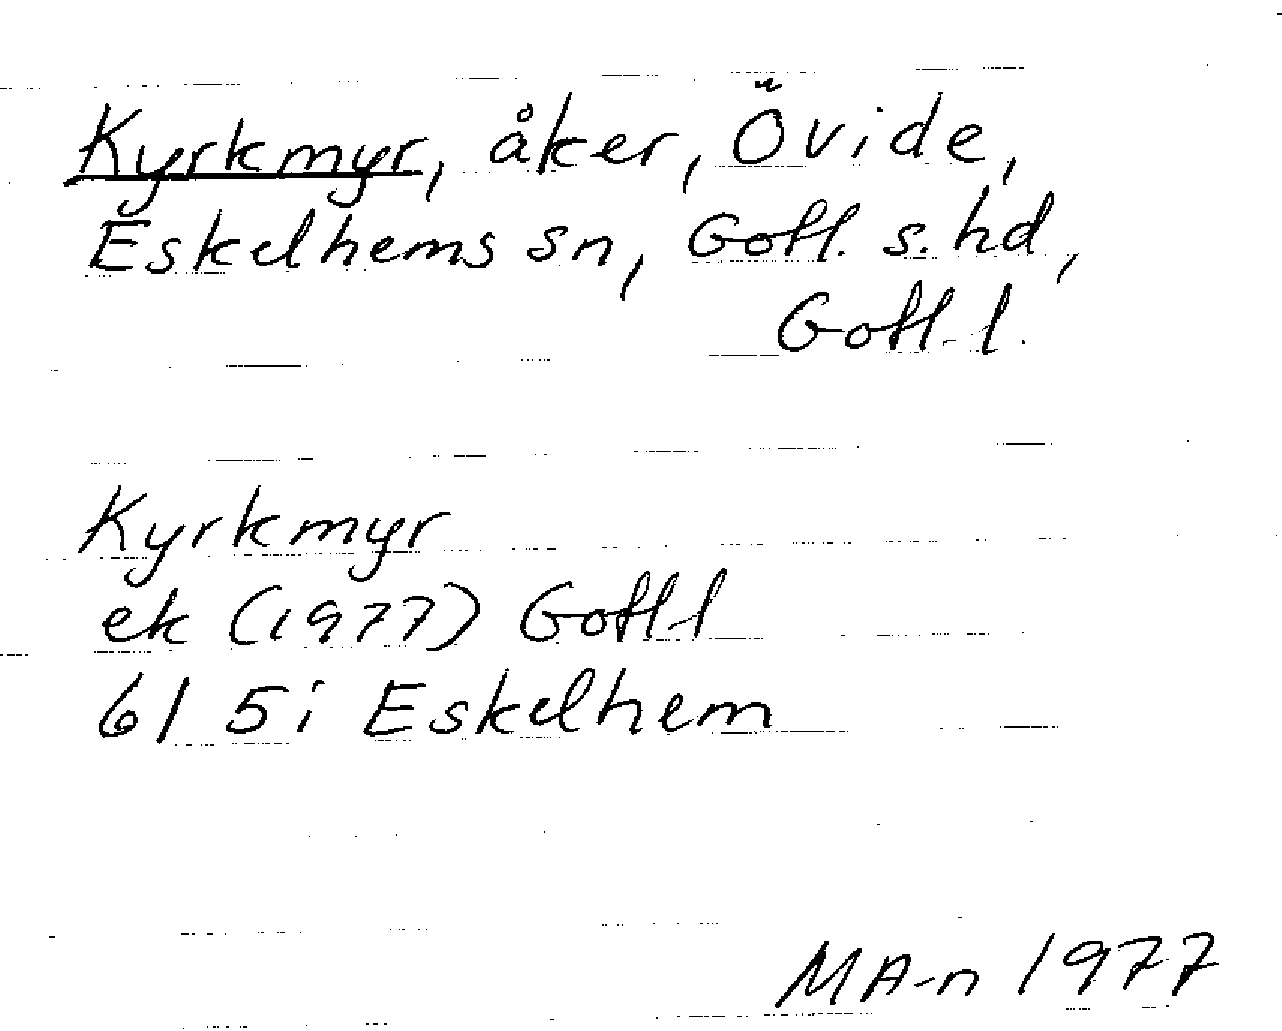 Kyrkmyr, åker, Övide,
Eskelhems sn, Gotl. s. hd,
Gotl. l.
Kyrkmyr
ek (1977) Gotl. l
61 5i Eskelhem
MA-n 1977